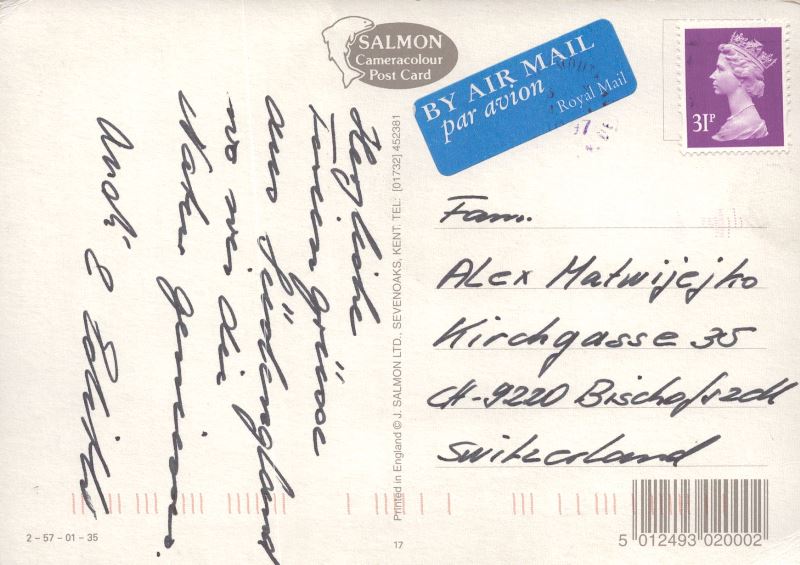 SALMON
Cameracolour
Post Card
BY AIR MAIL
par avion
Royal Mail
31P
Herzliche
Feriengrüsse
aus Südengland
wo wir die
Natur geniessen.
Fam.
Alex Matwijejko
Kirchgasse 35
CH-9220 Bischofszell
Switzerland
Printed in England © J. SALMON LTD., SEVENOAKS, KENT. TEL: [01732] 452381
2 – 57 – 01 – 35
17
5 012493 020002